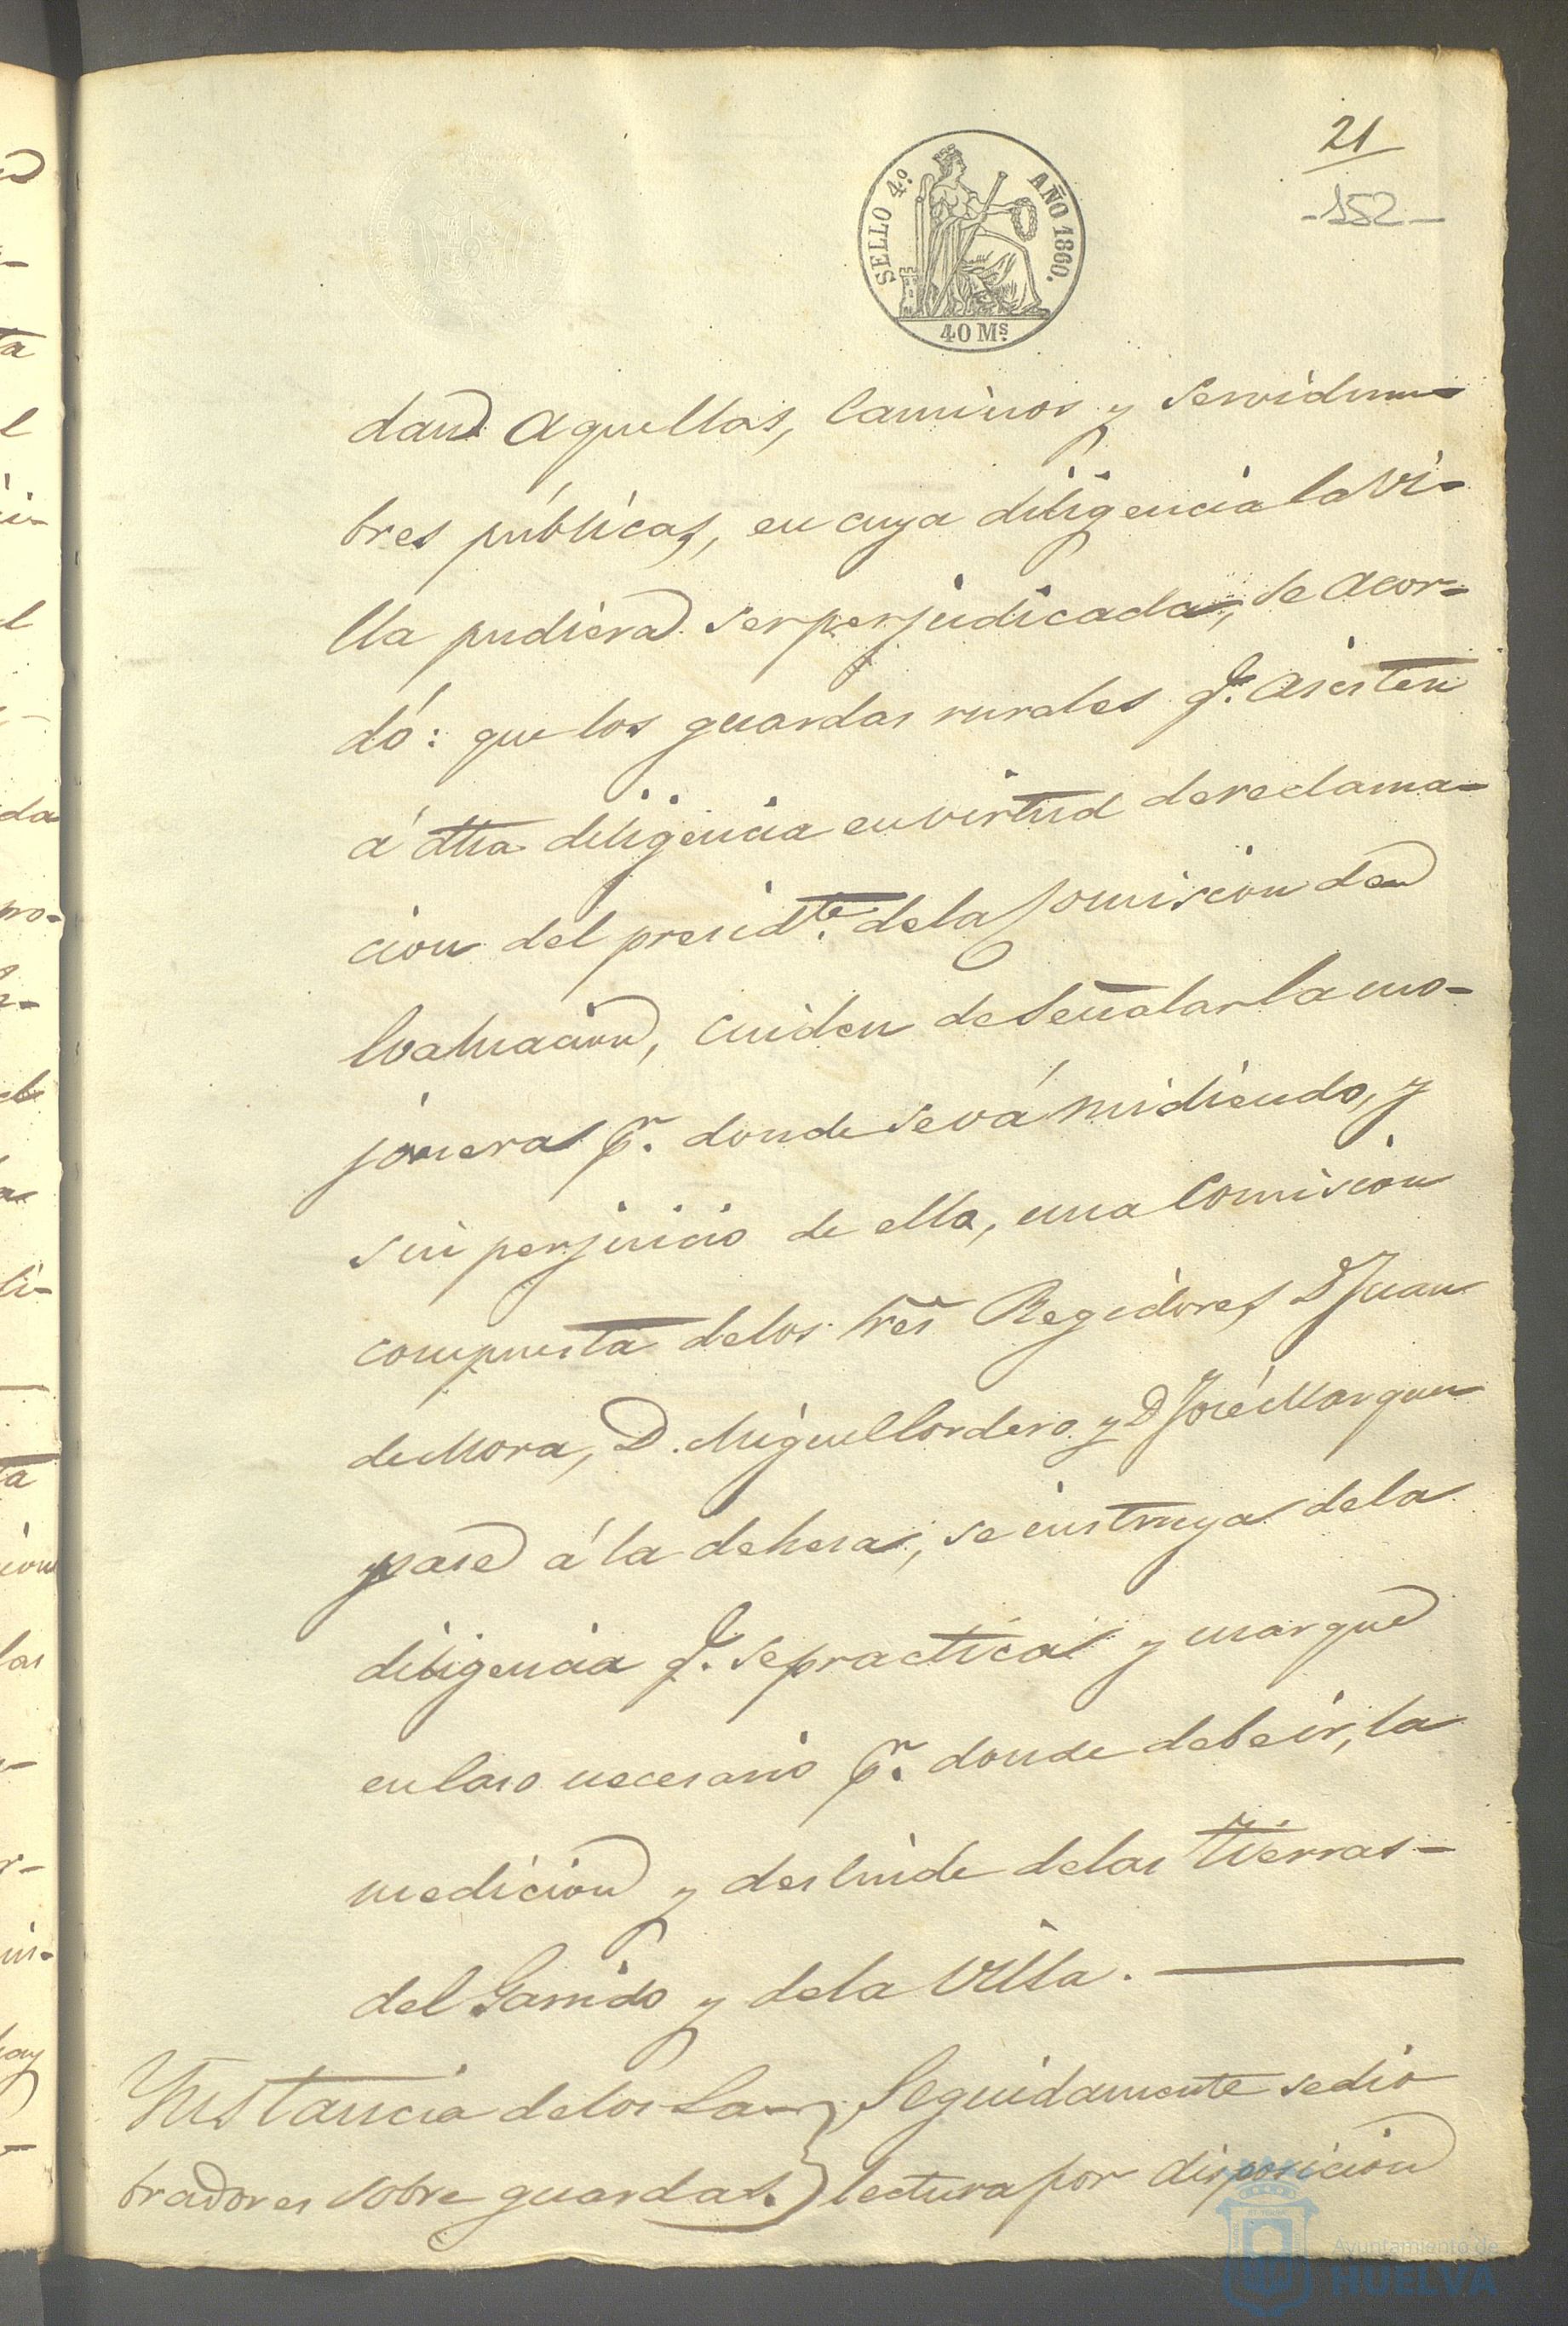 21
-152-
SELLO 4.º AÑO 1860.
40 Ms.
dand aquellas, Caminos y Servidum-
bres públicas, en cuya diligencia la Vi-
lla pudiera ser perjudicada, se acor-
dó: que los guardas rurales q.e asisten
á dha diligencia en virtud de reclama-
cion del presid.te de la Comision de
evaluacion, cuiden de Señalar la mo-
jonera p.r donde se vá midiendo, y
sin perjuicio de ella, una Comision
compuesta de los tres Regidores D Juan
de Mora, D. Miguel Cordero y D José Marquez
pase á la dehesa, se instruya de la
diligencia q.e se practica y marque
en Caso necesario p.r donde debe ir, la
medicion y deslinde de las tierras-
del Garrido y de la Villa.
Instancia de los La- Seguidamente se dio
bradores sobre guardas. lectura por disposicion
Ayuntamiento de
HUELVA